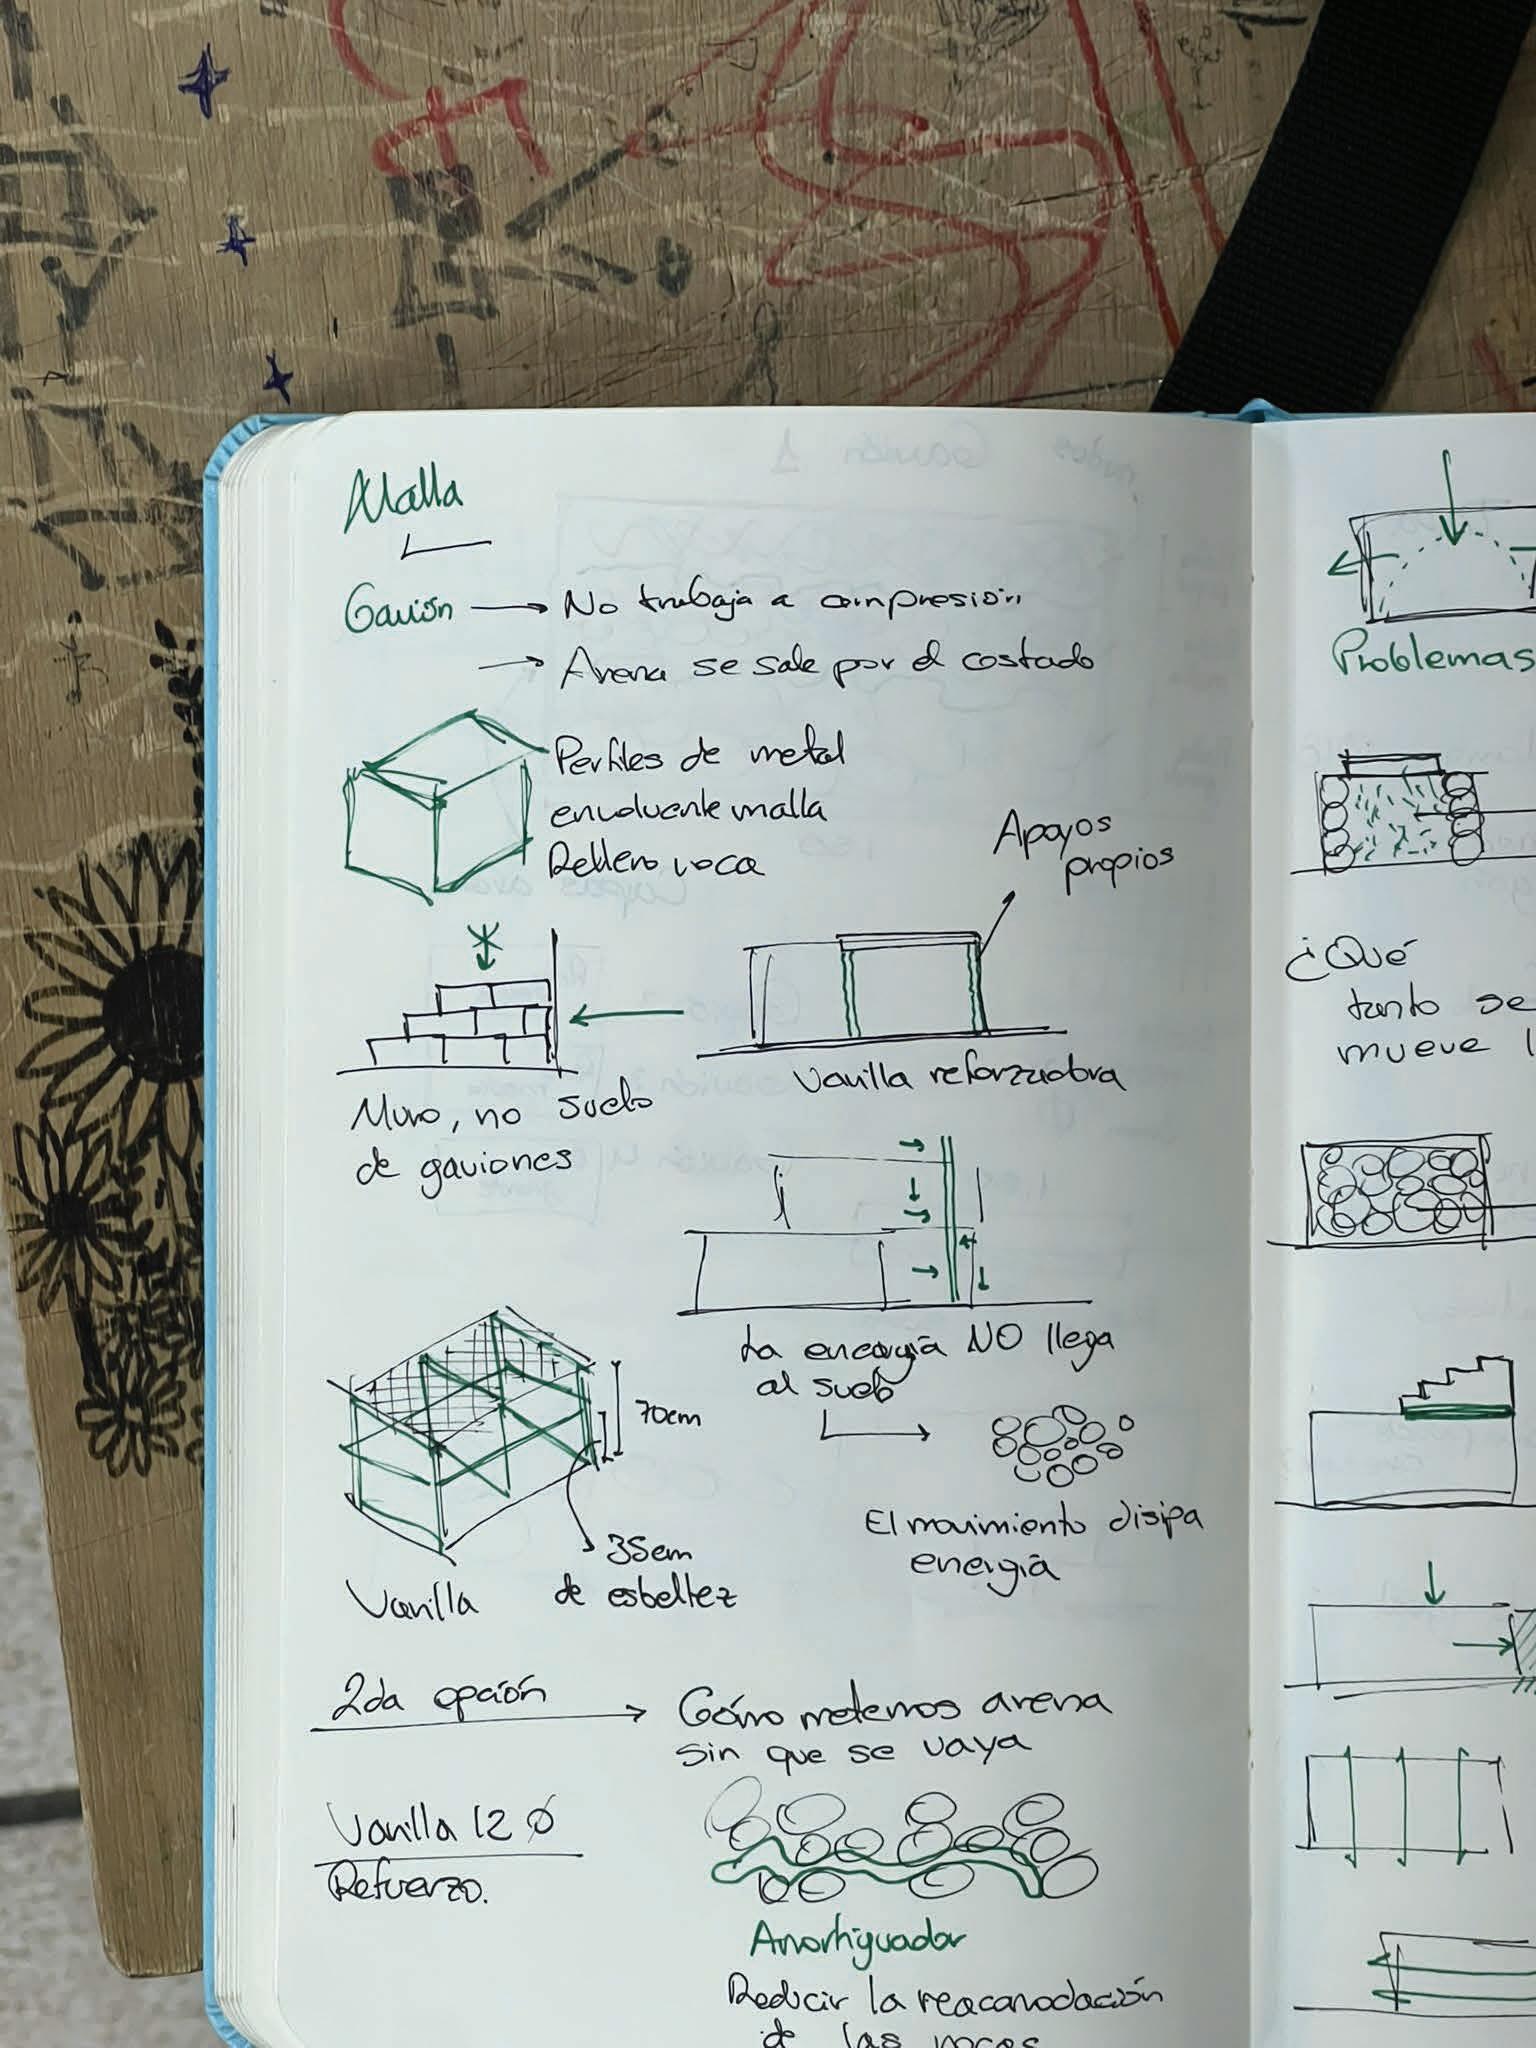 Malla
Gavión → No trabaja a compresión
→ Arena se sale por el costado
Perfiles de metal
envolvente malla
Relleno roca
Apoyos
propios
Varilla reforzadora
Muro, no suelo
de gaviones
La energía NO llega
al suelo
70cm
35cm
de esbeltez
Varilla
El movimiento disipa
energía
2da opción → Cómo metemos arena
sin que se vaya
Varilla 12 Ø
Refuerzo.
Amortiguador
Reducir la reacomodación
de las rocas
Problemas
¿Qué
tanto se
mueve l